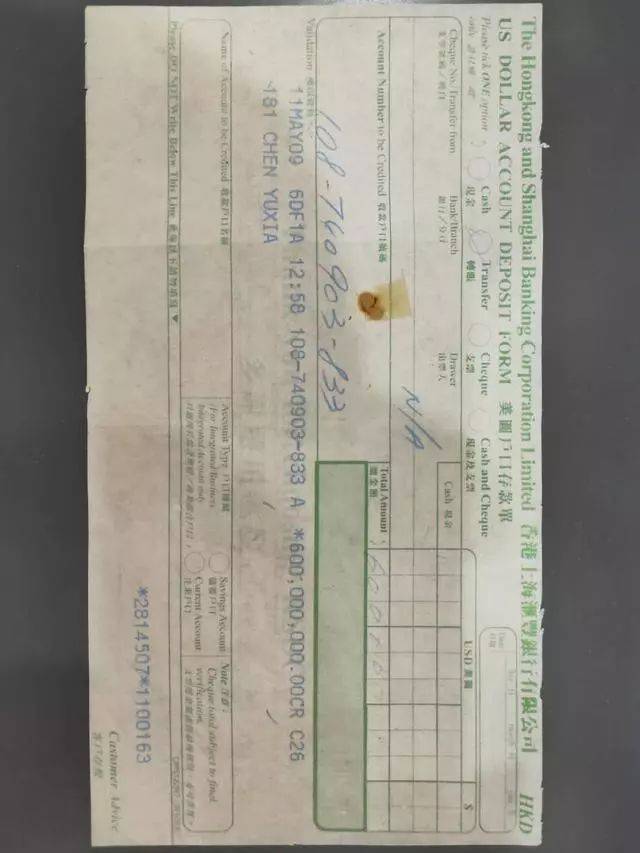 The Hongkong and Shanghai Banking Corporation Limited 香港上海滙豐銀行有限公司 HKD
US DOLLAR ACCOUNT DEPOSIT FORM 美圓戶口存款單
Please tick ONE option only
Cash 現金
Transfer 轉賬
Cheque 支票
Cash and Cheque 現金及支票
Date 日期
Cheque No./Transfer from
Bank/Branch 銀行/分行
Drawer 出票人
USD 美圓
$
N/A
Cash 現金
Account Number to be Credited 收款戶口號碼
Total Amount 總金額
108-740903-833
Validation
11MAY09 6DF1A 12:58 108-740903-833 A *600,000,000.00CR C26
181 CHEN YUXIA
Name of Account to be Credited 收款戶口名稱
Account Type 戶口種類
(For Integrated Business
Integrated Account only
Savings Account 儲蓄戶口
Current Account 往來戶口
Note 注意:
Cheque(s) subject to final
verification.
Please DO NOT Write Below This Line 此線以下請勿填寫
*2814507*1100163
Customer Advice
客戶存根